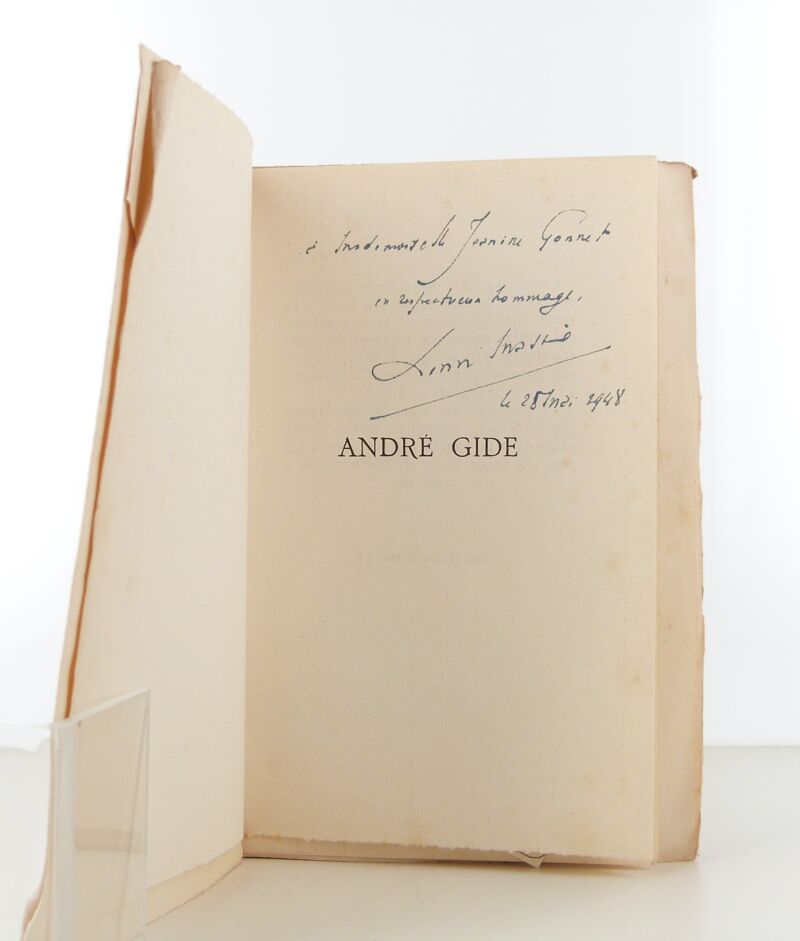 à Mademoiselle Jeanine Gonnet
en respectueux hommage,
le 28 Mai 1948
ANDRÉ GIDE